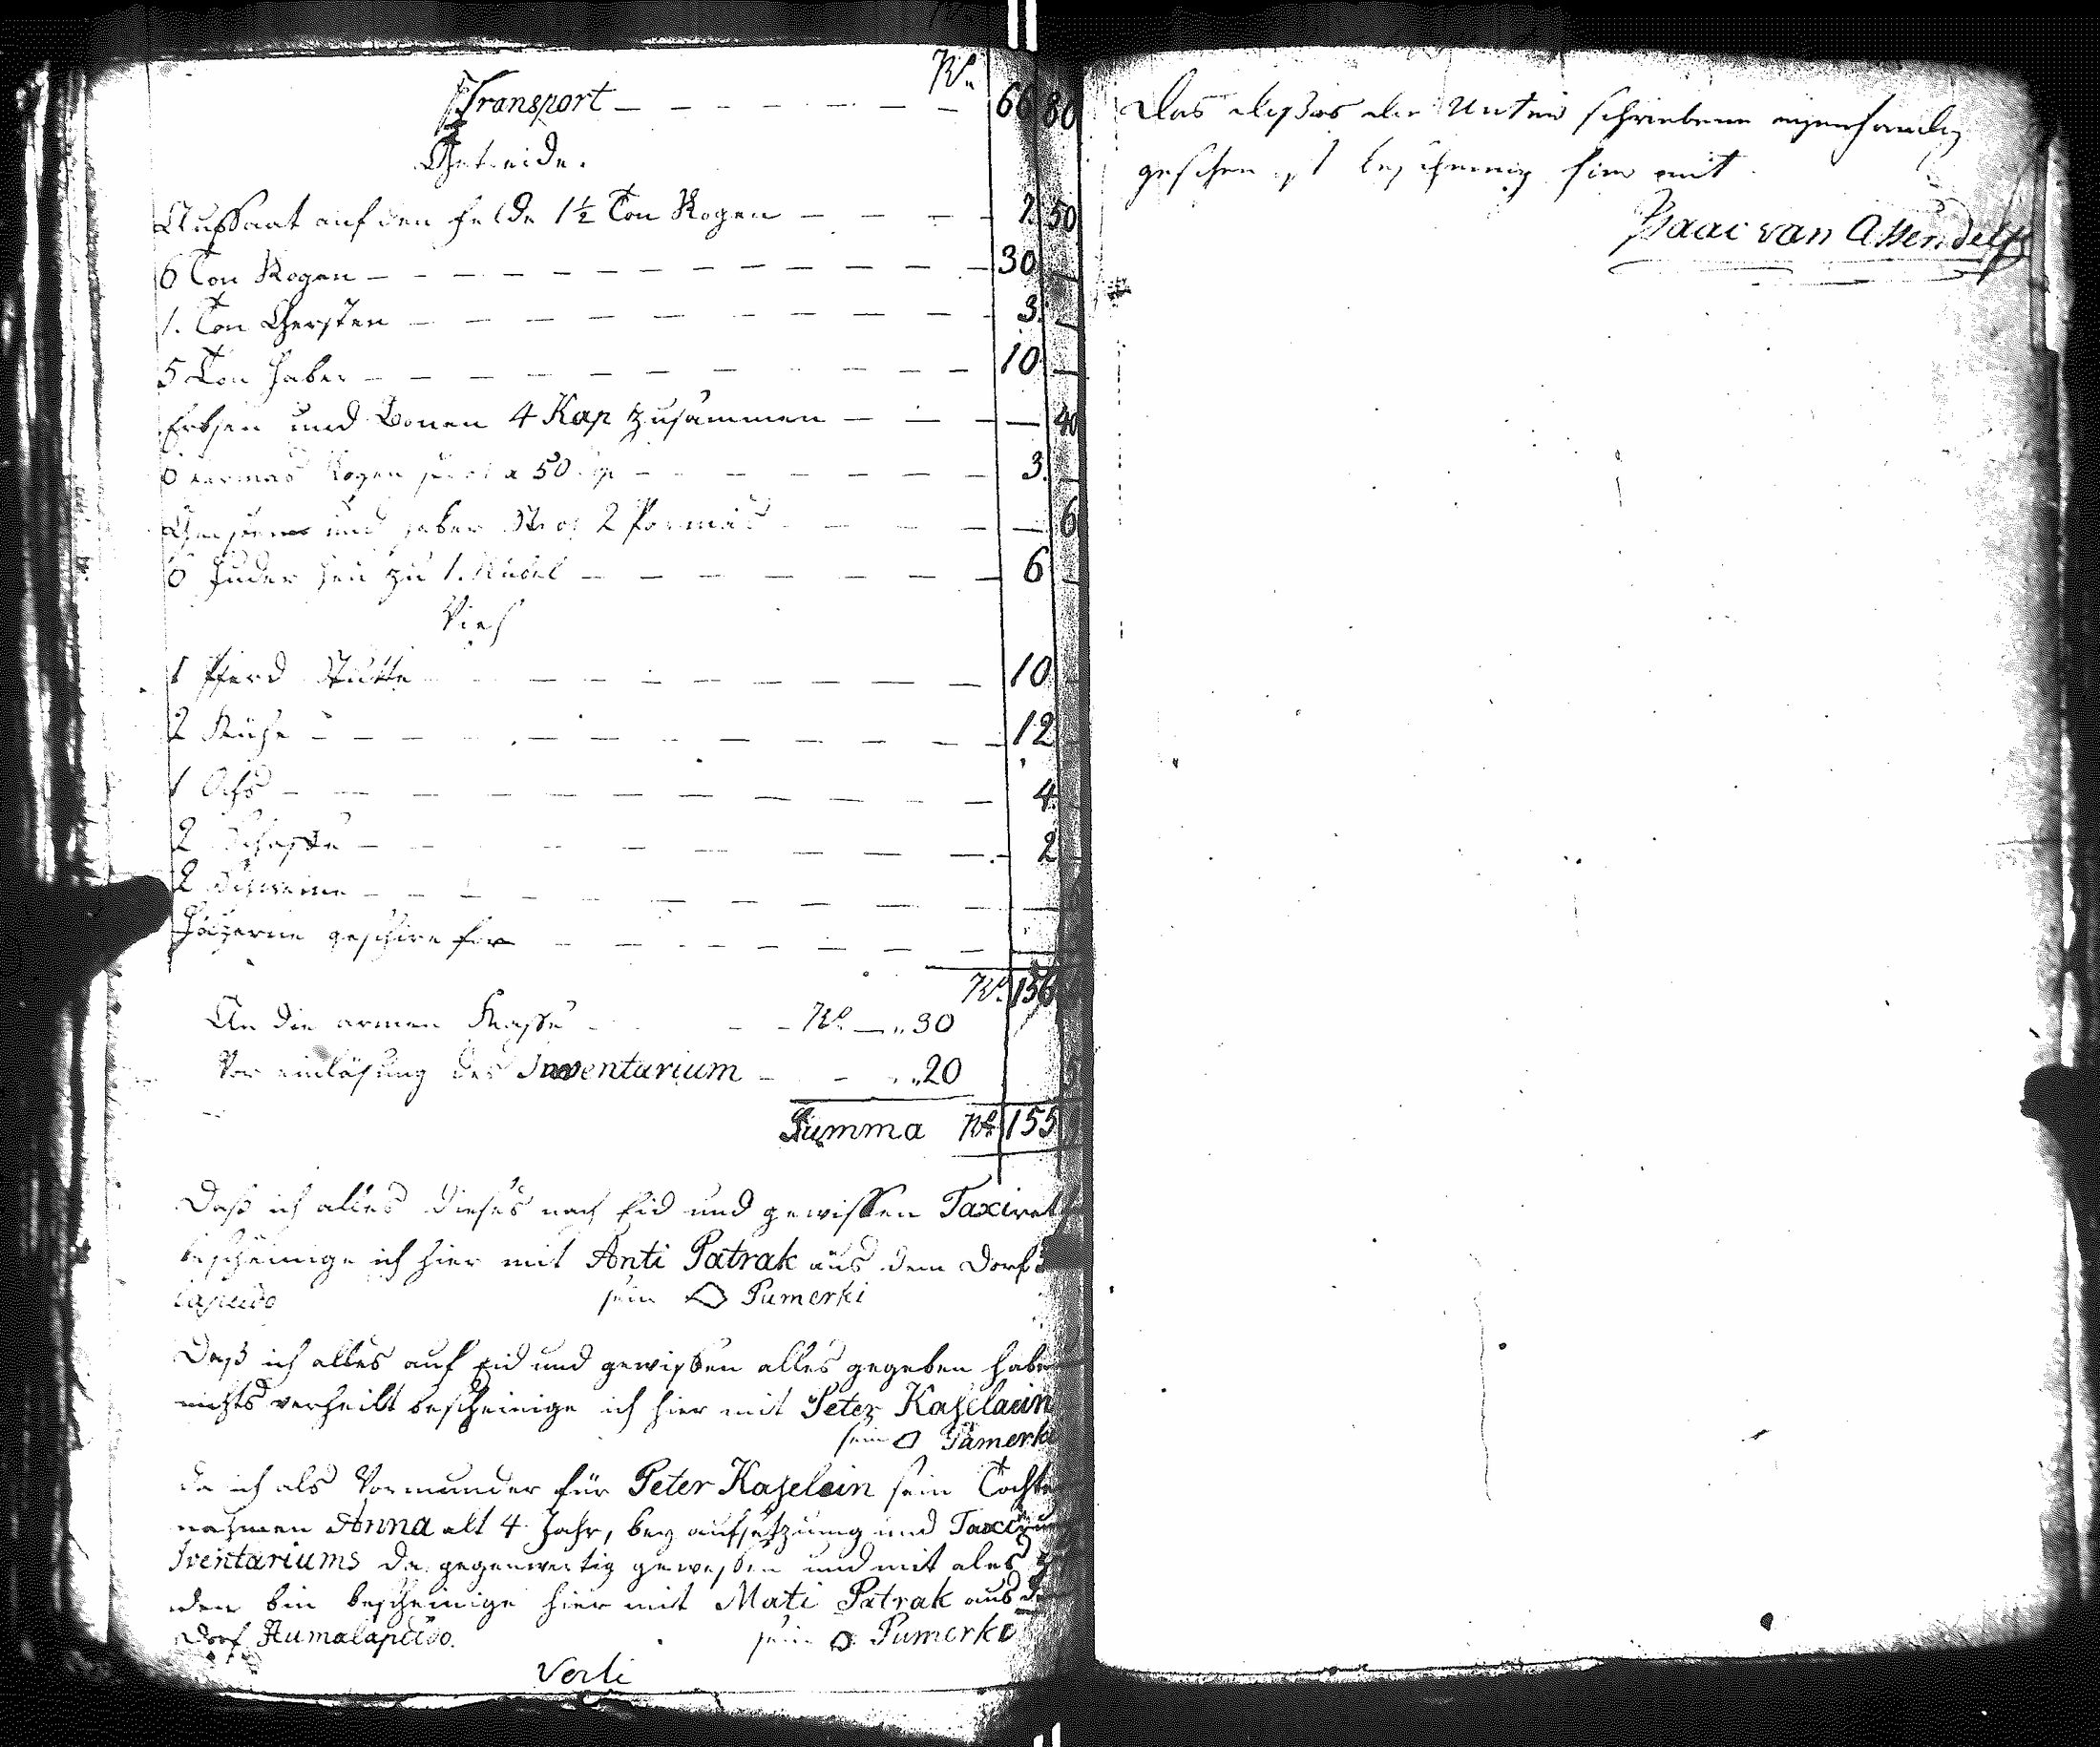 Rl.
Transport — — — — — — 66 80
Getreide.
Aussaat auf den felde 1½ Ton Rogen — — — — 7. 50
6 Ton Rogen — — — — — — — — — — 30 —
1. Ton Gersten — — — — — — — — — — 3. —
5 Ton Haber — — — — — — — — — — 10 —
Erbsen und Bonen 4 Kap zusammen — — — — 40
Rogen a 50 — — — — — 3. —
und Haber 2 Parmas — — — — 6
6 Fuder Heu zu 1. Rubel — — — — — — 6 —
Vieh
1 Pferd Stutte — — — — — — — — 10
2 Kühe — — — — — — — — — 12
1 Ochs — — — — — — — — — 4
2 Schaffe — — — — — — — — 2
2 Schweine — — — — — — — —
Hölzerne geschire for — — — — — —
Rl. 156
An die armen Kasse — — — Rl. — „ 30
Vor einlösung des Inventarium — — „ 20
Summa Rl. 155
Daß ich alles dieses nach Eid und gewissen Taxiret
bescheinige ich hier mit Anti Patrak aus dem Dorf
sein Pumerki
Daß ich alles auf Eid und gewissen alles gegeben habe
nichts verheilt bescheinige ich hier mit Peter Kaselain
sein Pumerki
da ich als Vormunder für Peter Kaselain sein Tochte
nahmen Anna alt 4 Jahr, bey aufsetzung und
Iventariums da gegenwertig gewesen und mit ales
den bin bescheinige hier mit Mati Patrak aus
Dorf Humalapeldo. sein Pumerki
Verti
Das dieses die Unter schriebene eigenhandig
geschen ist bescheinig hier mit
Isaac van Assendelft